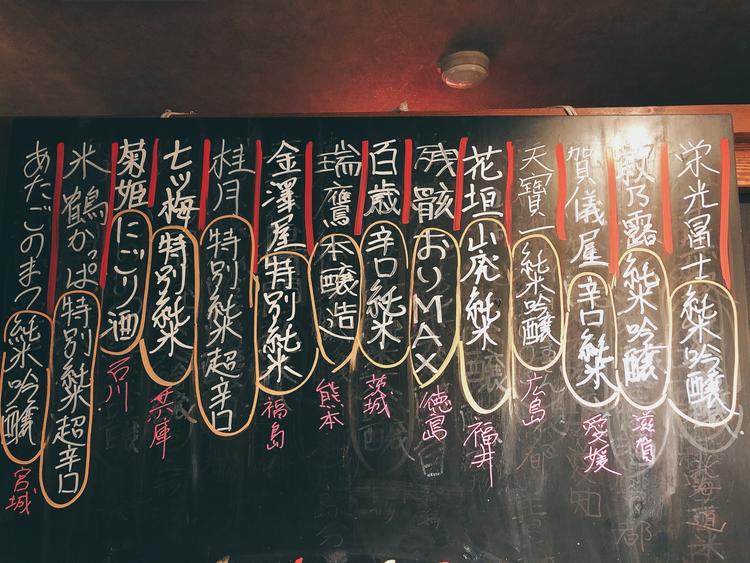 栄光冨士 純米吟醸
萩乃露 純米吟醸 滋賀
賀儀屋 辛口純米 愛媛
天寶一 純米吟醸 広島
花垣 山廃純米 福井
残骸 おりMAX 徳島
百歳 辛口純米 茨城
瑞鷹 本醸造 熊本
金澤屋 特別純米 福島
桂月 特別純米超辛口
七ツ梅 特別純米 兵庫
菊姫 にごり酒 石川
米鶴かっぱ 特別純米超辛口
あたごのまつ 純米吟醸 宮城